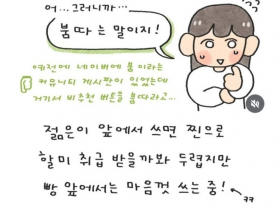 어... 그러니까...
붐따 는 말이지!
예전에 네이버에 붐 이라는
커뮤니티 게시판이 있었는데
거기서 비추천 버튼을 붐따라고...
젊은이 앞에서 쓰면 찐으로
할미 취급 받을까봐 두렵지만
빵 앞에서는 마음껏 쓰는 중!
ㅋㅋ